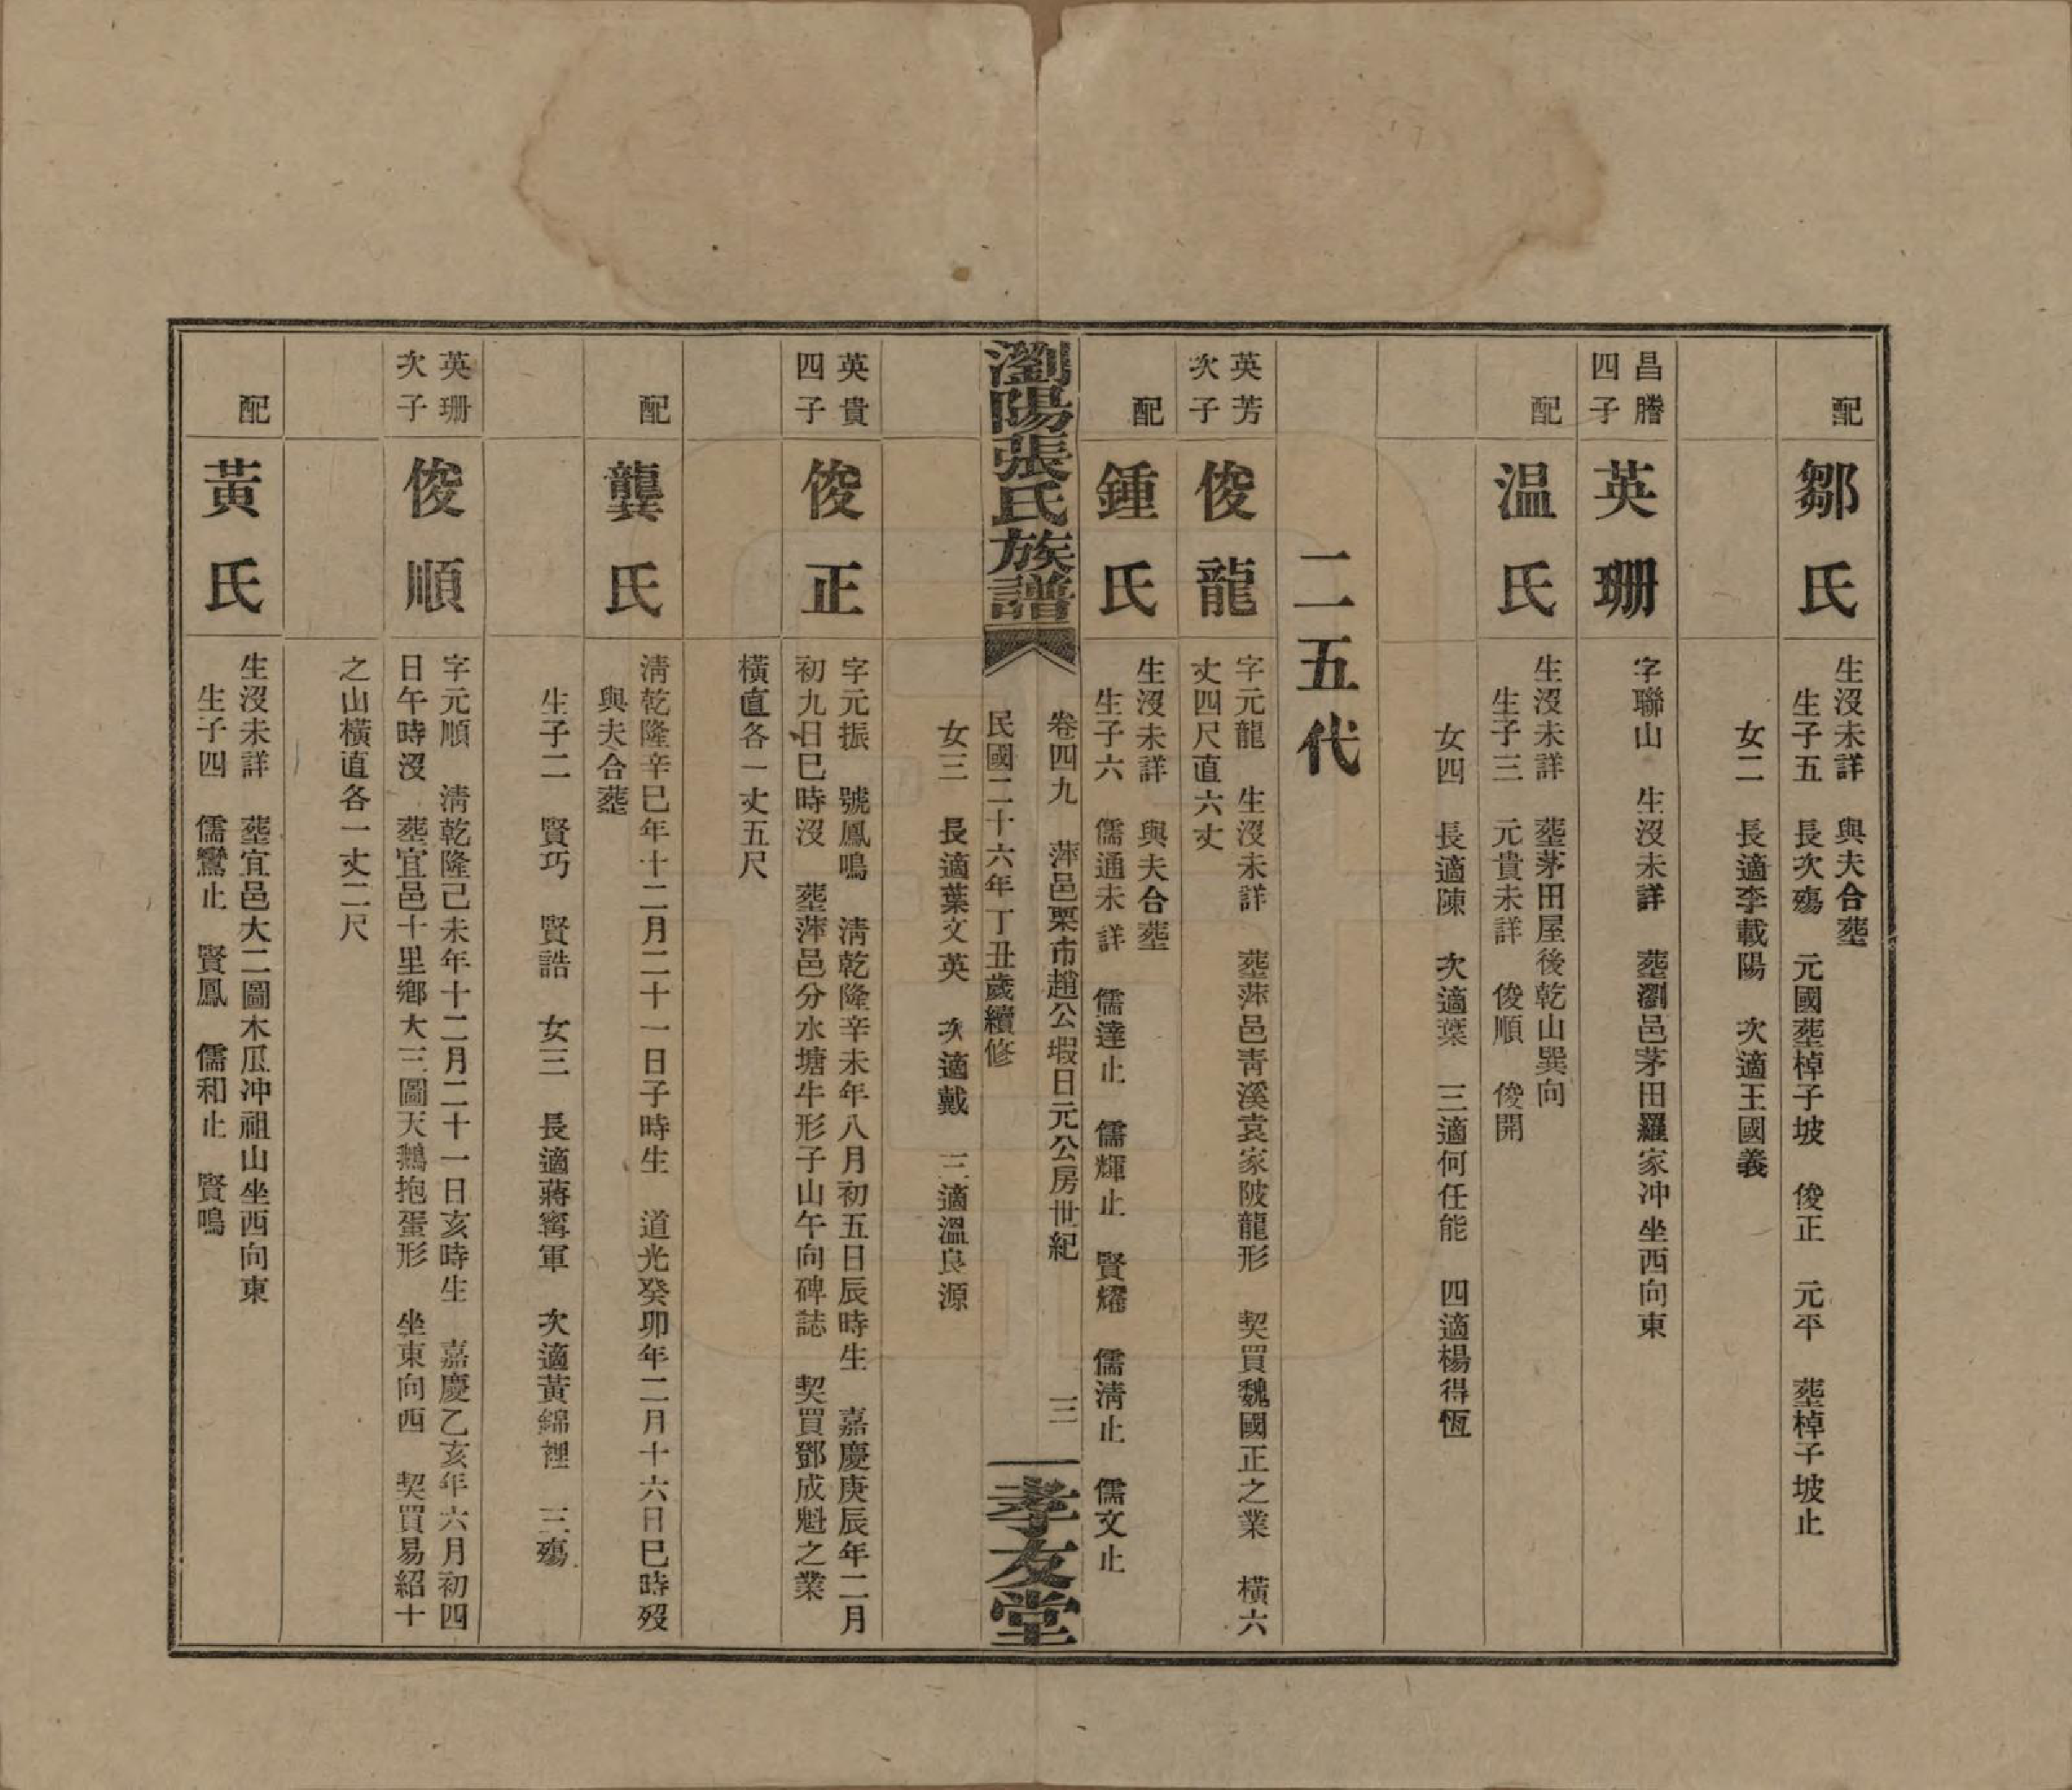 配
鄒氏
生沒未詳　與夫合葬
生子五　長次殤　元國葬棹子坡　俊正　元平　葬棹子坡止
女二　長適李載陽　次適王國義
昌謄
四子
英珊
字聯山　生沒未詳　葬瀏邑茅田羅家冲坐西向東
配
温氏
生沒未詳　葬茅田屋後乾山巽向
生子三　元貴未詳　俊順　俊開
女四　長適陳　次適葉　三適何任能　四適楊得恆
二五代
英芳
次子
俊龍
字元龍　生沒未詳　葬萍邑青溪袁家陂龍形　契買魏國正之業　橫六
丈四尺直六丈
配
鍾氏
生沒未詳　與夫合葬
生子六　儒通未詳　儒達止　儒輝止　賢耀　儒清止　儒文止
瀏陽張氏族譜
卷四九　萍邑栗市趙公嘏日元公房世紀　三
民國二十六年丁丑歲續修
孝友堂
女三　長適葉文英　次適戴　三適溫良源
英貴
四子
俊正
字元振　號鳳鳴　清乾隆辛未年八月初五日辰時生　嘉慶庚辰年二月
初九日巳時沒　葬萍邑分水塘牛形子山午向碑誌　契買鄧成魁之業
橫直各一丈五尺
配
龔氏
清乾隆辛巳年十二月二十一日子時生　道光癸卯年二月十六日巳時歿
與夫合葬
生子二　賢巧　賢誥　女三　長適蔣寗軍　次適黃錦裡　三殤
英珊
次子
俊順
字元順　清乾隆己未年十二月二十一日亥時生　嘉慶乙亥年六月初四
日午時沒　葬宜邑十里鄉大三圖天鵝抱蛋形　坐東向西　契買易紹十
之山橫直各一丈二尺
配
黃氏
生沒未詳　葬宜邑大二圖木瓜冲祖山坐西向東
生子四　儒鸞止　賢鳳　儒和止　賢鳴